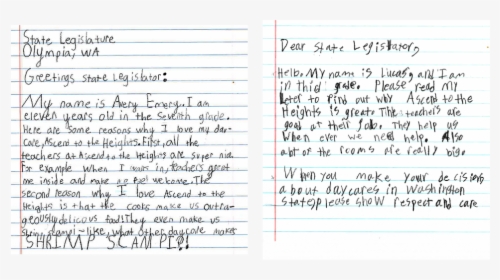 State Legislature
Olympia, WA
Greetings state Legislator:
My name is Avery Emery. I am
eleven years old in the seventh grade.
Here are some reasons why I love my day-
care, Ascend to the Heights. First, all the
teachers at Ascend to the Heights are super nice.
For example when I come in, teachers greet
me inside and make me feel welcome. The
second reason why I love Ascend to the
Heights is that the cooks make us outra-
geously delicous food! They even make us
shrimp scampi-like, what other daycare makes
SHRIMP SCAMPI?!
Dear State Legislator,
Hello. My name is Lucas, and I am
in third grade. Please, read my
leter to find out why Ascend to the
Heights is great. The teachers are
good at their job. They help us
When ever we need help. Also
alot of the rooms are really big.
When you make your decisions
about daycares in Washington
State, please show respect and care